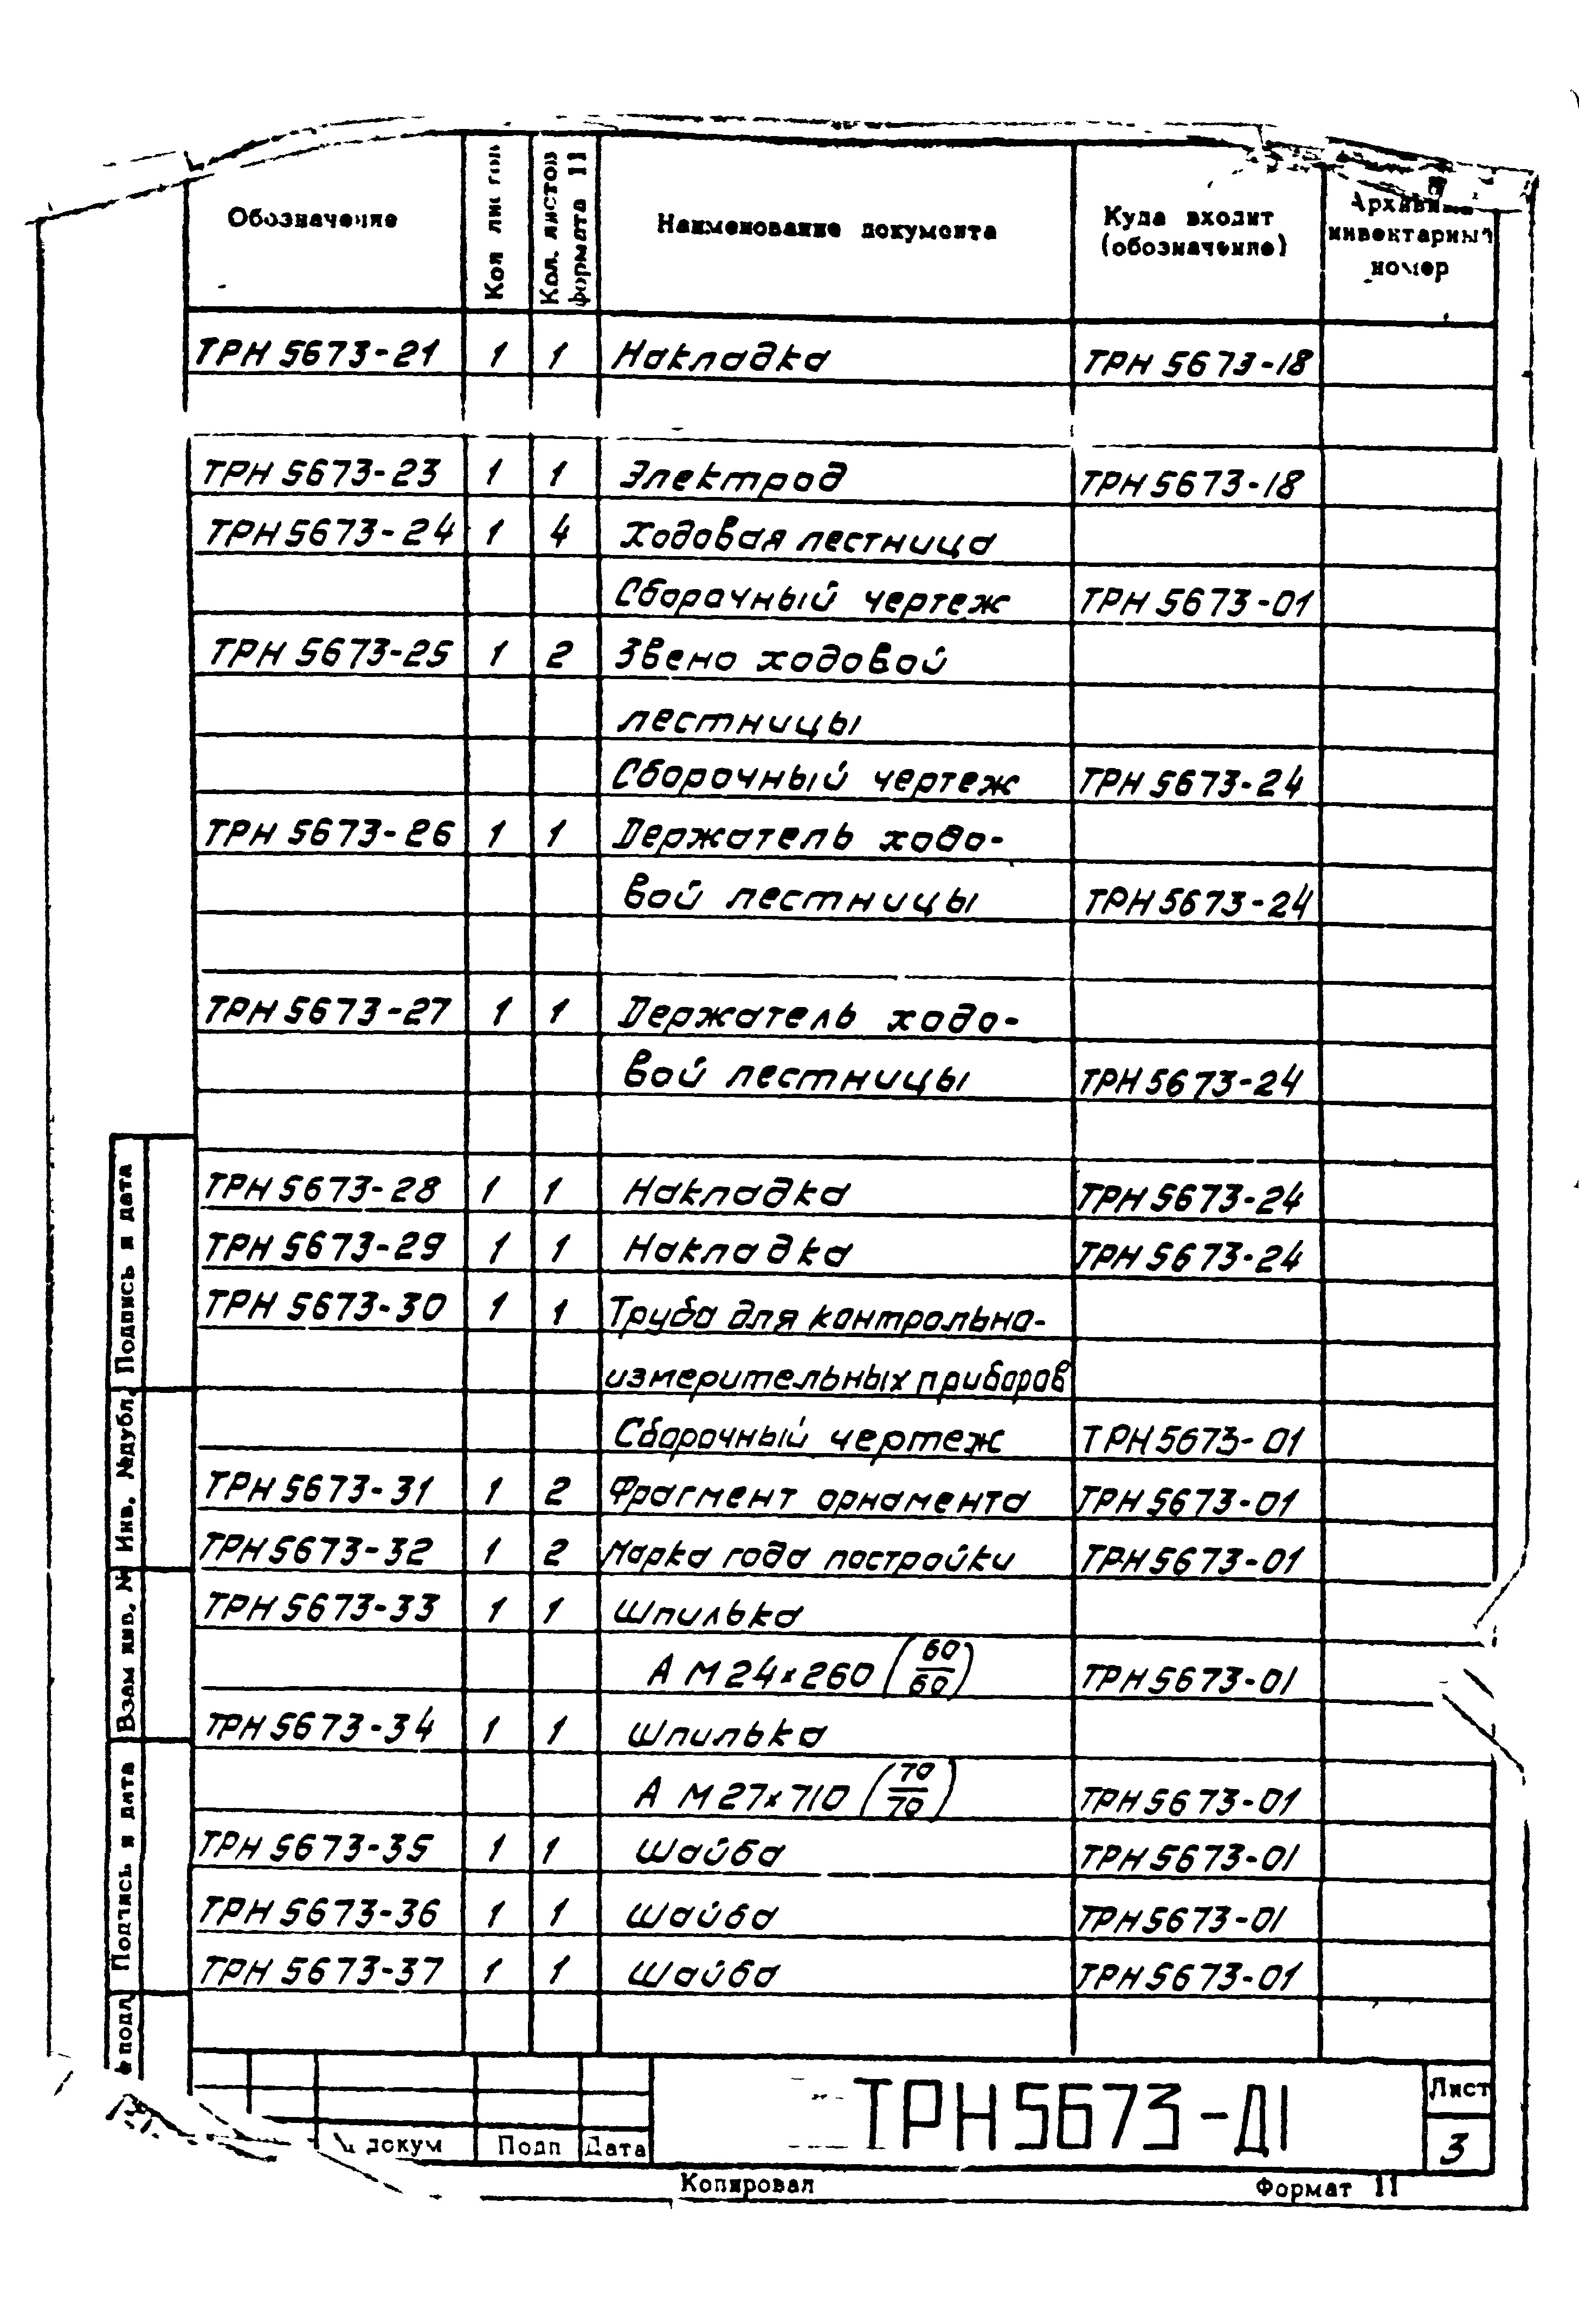 Обозначение Кол листов Кол. листов формата 11 Наименование документа Куда входит (обозначение) Архивный инвентарный номер
ТРН 5673-21 1 1 Накладка ТРН 5673-18
ТРН 5673-23 1 1 Электрод ТРН 5673-18
ТРН 5673-24 1 4 Ходовая лестница
Сборочный чертеж ТРН 5673-01
ТРН 5673-25 1 2 Звено ходовой
лестницы
Сборочный чертеж ТРН 5673-24
ТРН 5673-26 1 1 Держатель ходо-
вой лестницы ТРН 5673-24
ТРН 5673-27 1 1 Держатель ходо-
вой лестницы ТРН 5673-24
ТРН 5673-28 1 1 Накладка ТРН 5673-24
ТРН 5673-29 1 1 Накладка ТРН 5673-24
ТРН 5673-30 1 1 Труба для контрольно-
измерительных приборов
Сборочный чертеж ТРН 5673-01
ТРН 5673-31 1 2 Фрагмент орнамента ТРН 5673-01
ТРН 5673-32 1 2 Марка года постройки ТРН 5673-01
ТРН 5673-33 1 1 Шпилька
А М24×260 (60/60) ТРН 5673-01
ТРН 5673-34 1 1 Шпилька
А М27×710 (70/70) ТРН 5673-01
ТРН 5673-35 1 1 Шайба ТРН 5673-01
ТРН 5673-36 1 1 Шайба ТРН 5673-01
ТРН 5673-37 1 1 Шайба ТРН 5673-01
Подпись и дата
Инв. № дубл.
Взам инв. №
Подпись и дата
№ подл
ТРН 5673-Д1
Лист
3
№ докум Подп Дата
Копировал Формат 11